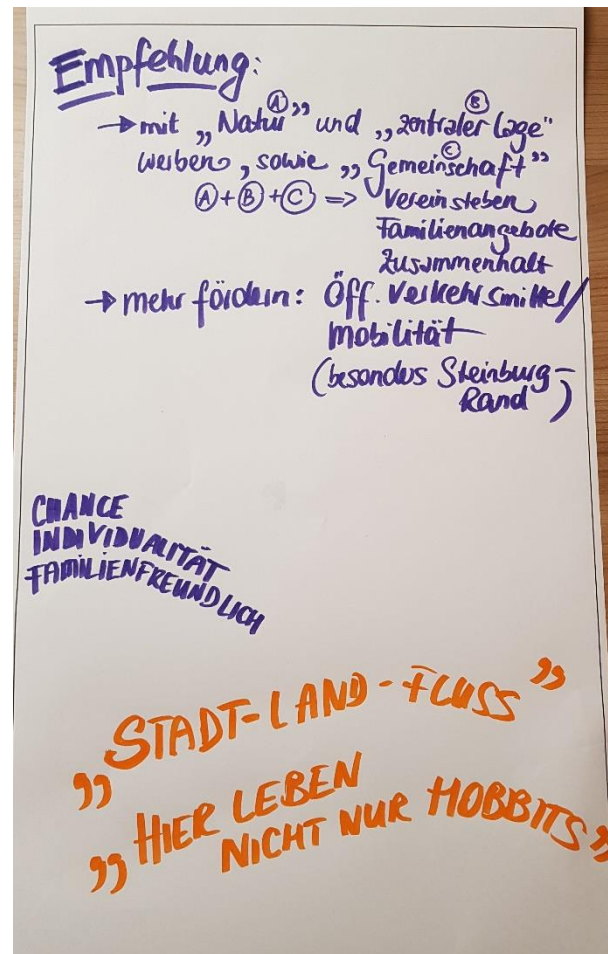 Empfehlung:
Ⓐ Ⓑ
→ mit „Natur” und „zentraler Lage”
Ⓒ
werben, sowie „Gemeinschaft”
Ⓐ+Ⓑ+Ⓒ => Vereinsleben
Familienangebote
Zusammenhalt
→ mehr fördern: Öff. Verkehrsmittel/
Mobilität
(besonders Steinburg-
Rand)
CHANCE
INDIVIDUALITÄT
FAMILIENFREUNDLICH
„STADT-LAND-FLUSS”
„HIER LEBEN
NICHT NUR HOBBITS”